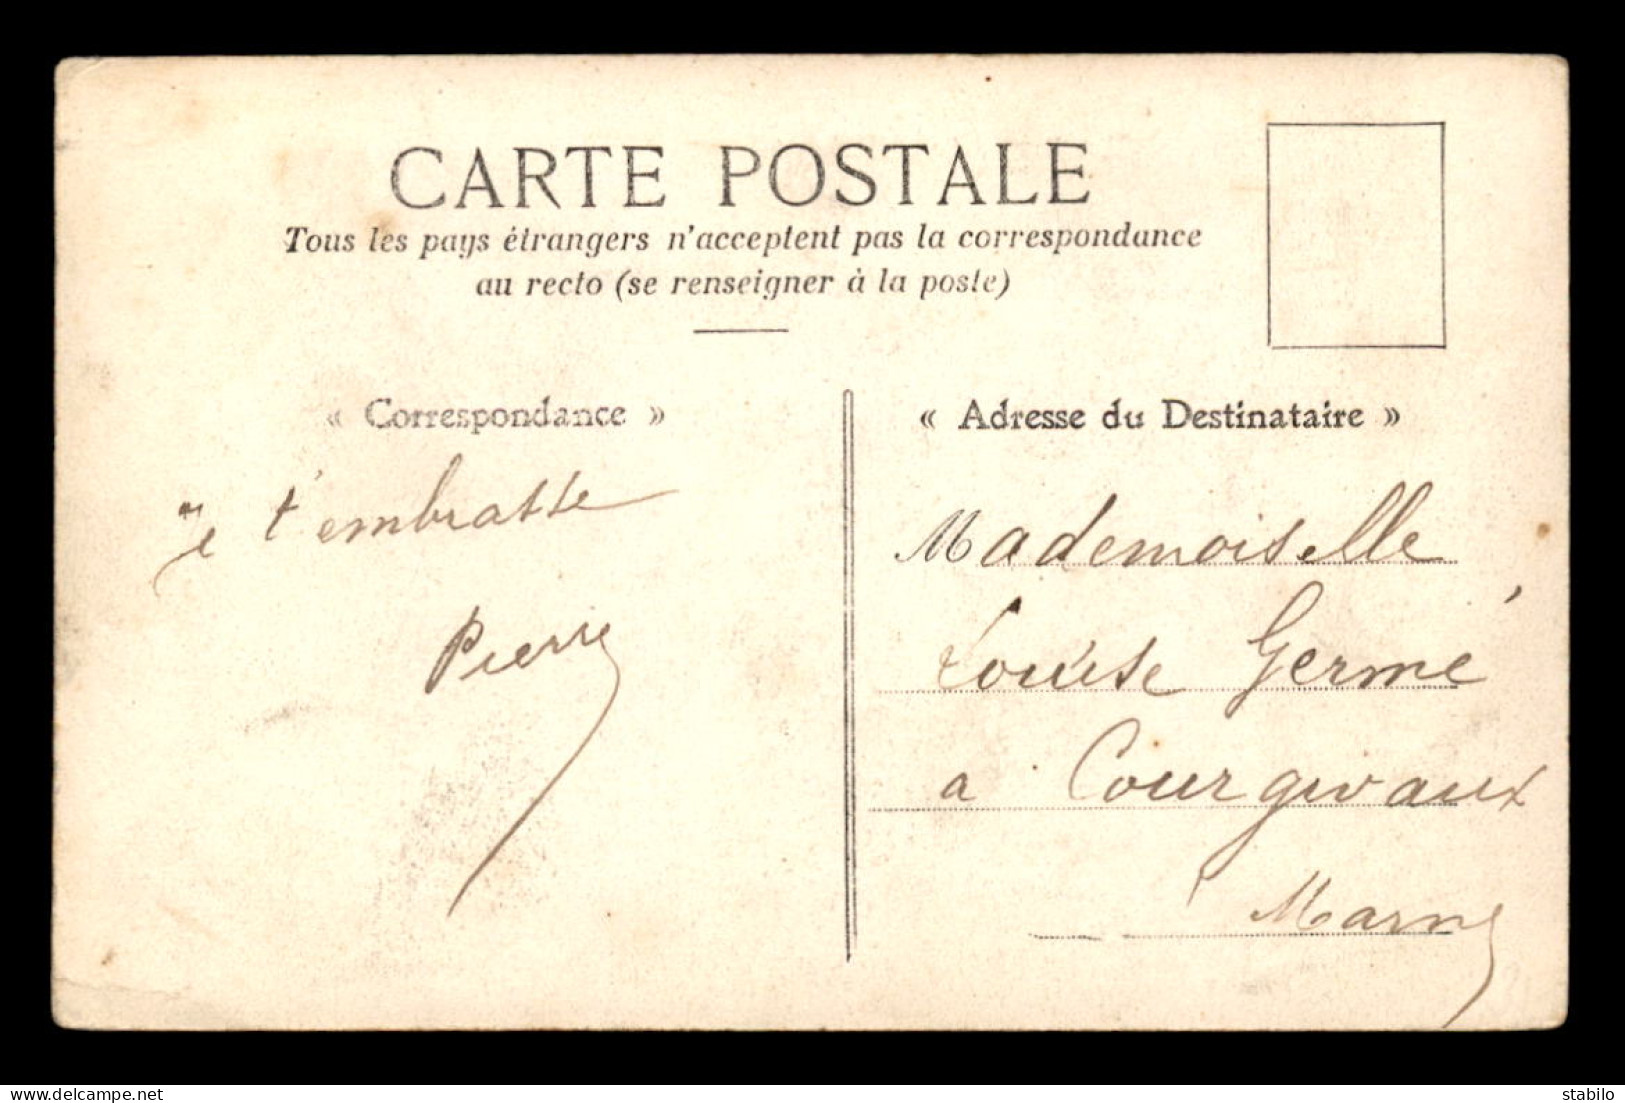 CARTE POSTALE
Tous les pays étrangers n'acceptent pas la correspondance
au recto (se renseigner à la poste)
« Correspondance »
Je t'embrasse
Pierre
« Adresse du Destinataire »
Mademoiselle
Louise Germé
a Courgivaux
Marne
www.delcampe.net
stabilo